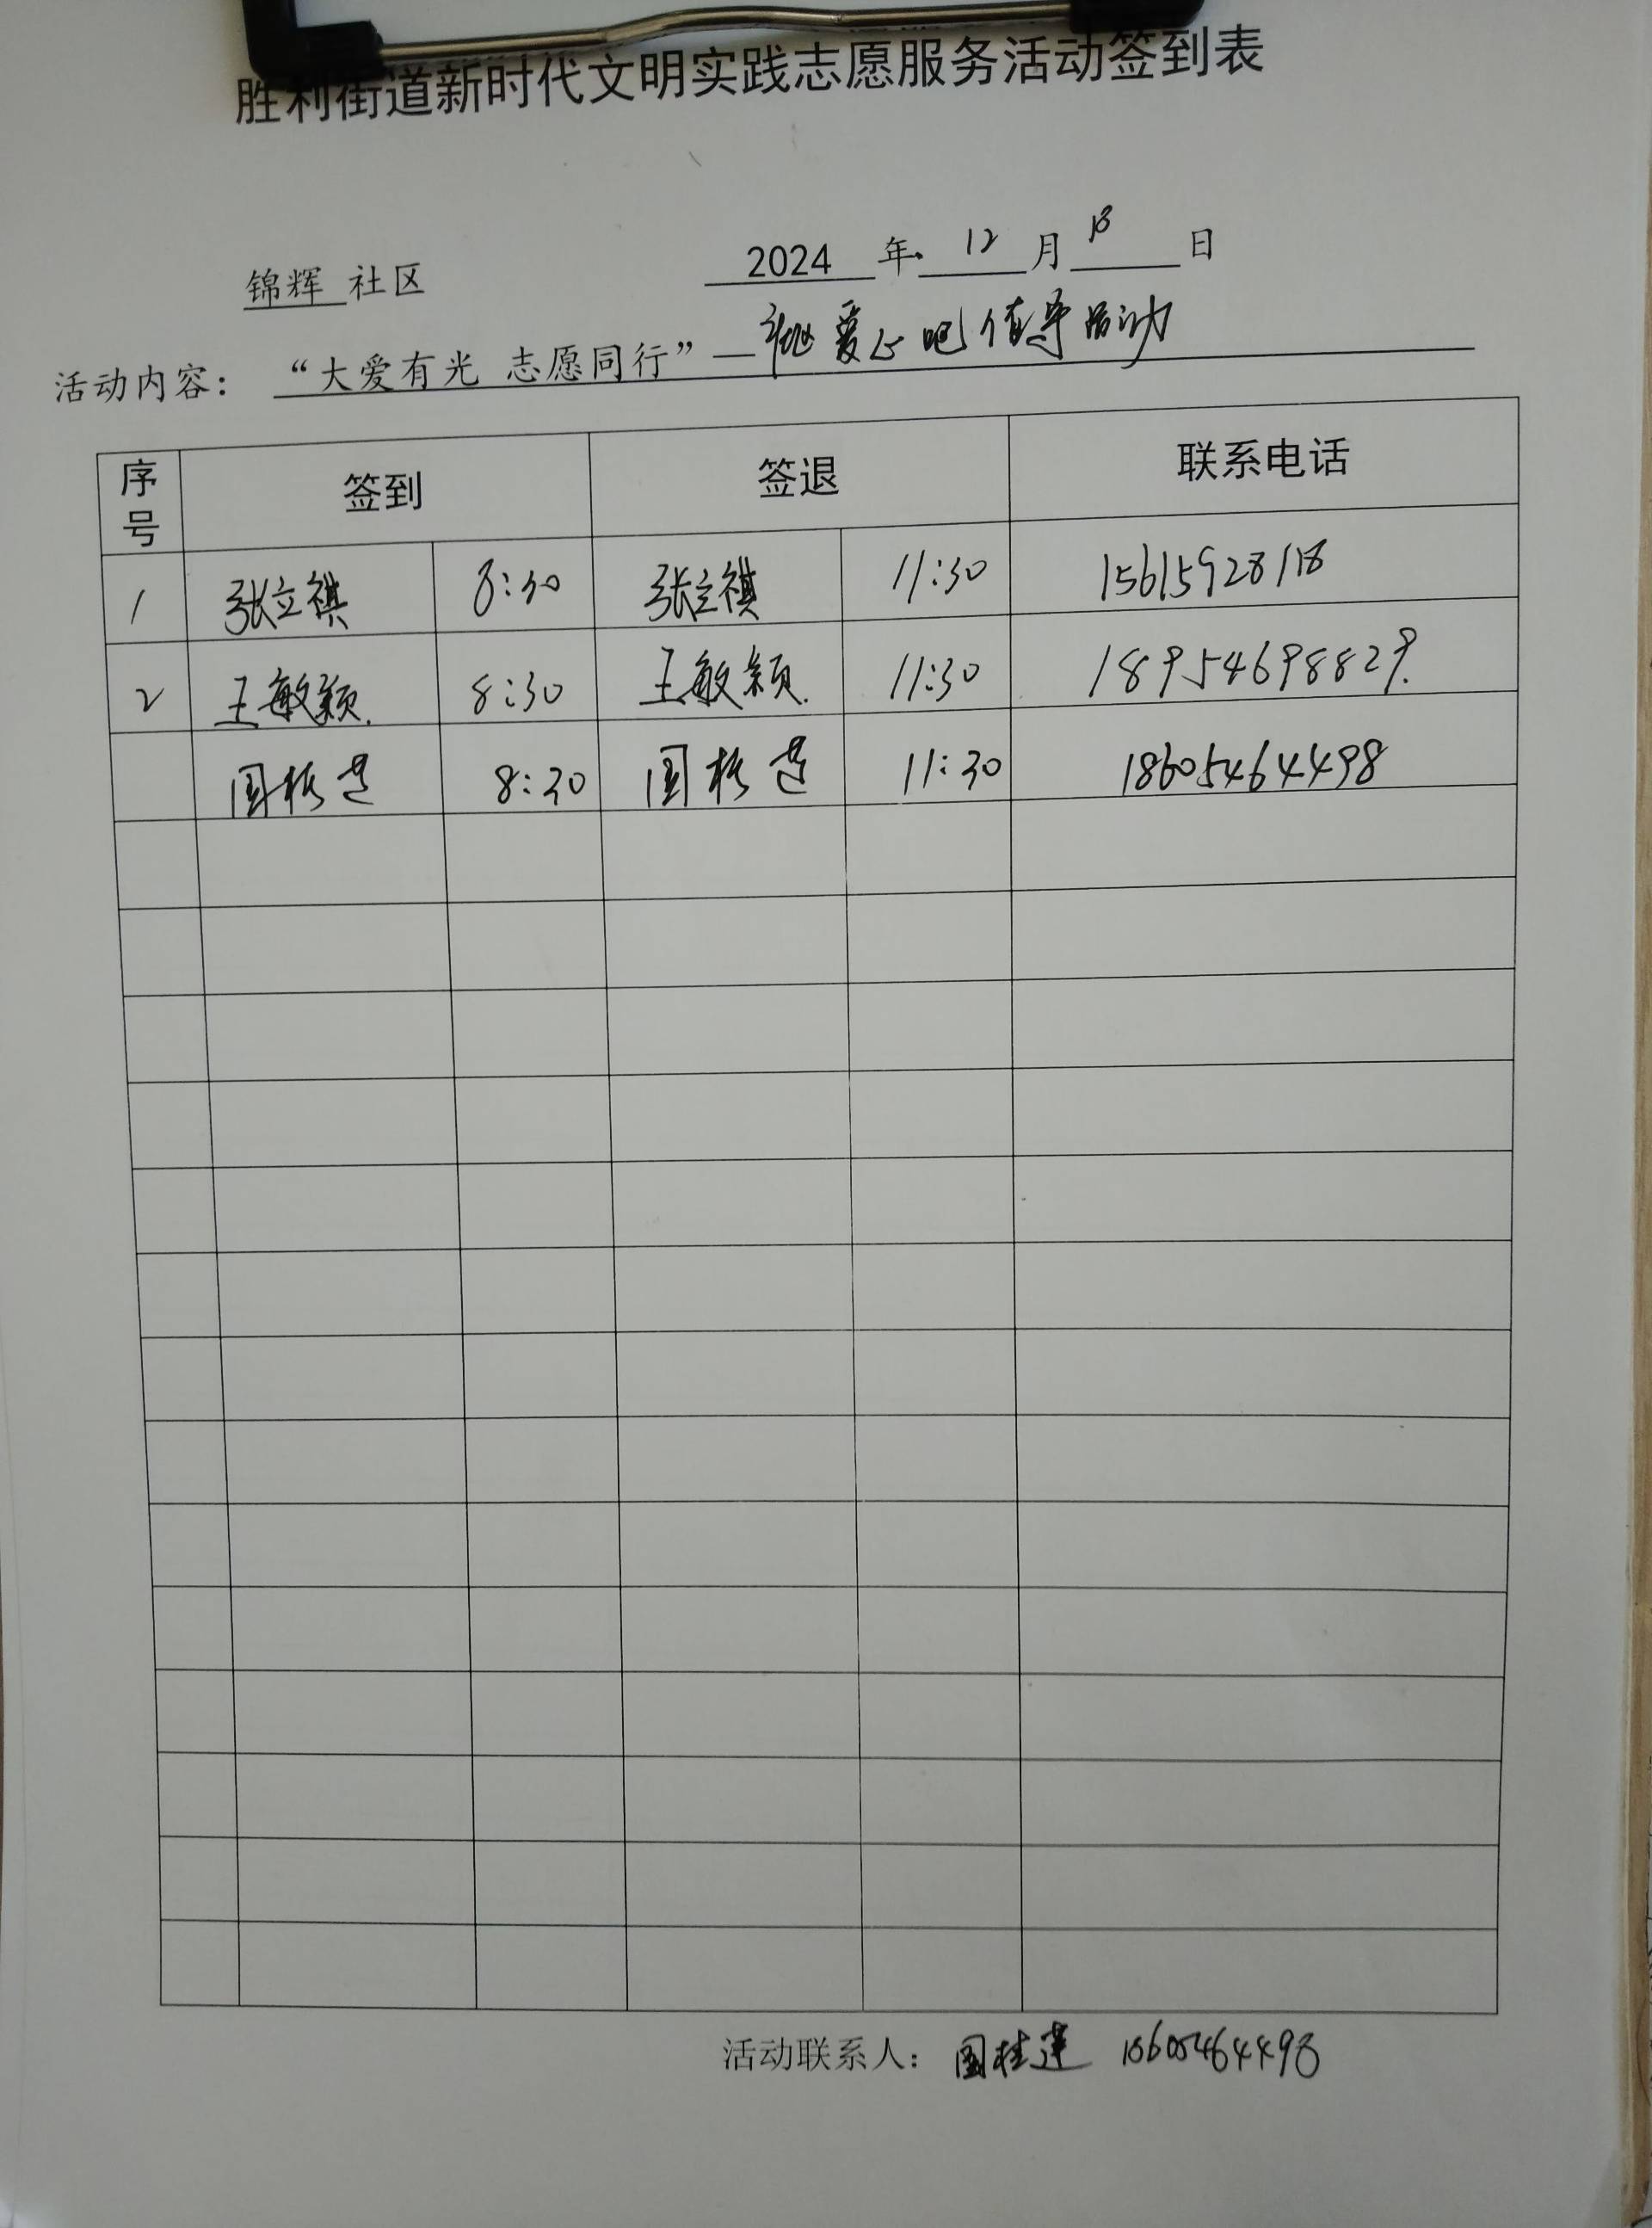 胜利街道新时代文明实践志愿服务活动签到表
锦辉 社区 2024 年 12 月 13 日
活动内容： “大爱有光 志愿同行”— 爱心吧值导活动
序号 签到 签退 联系电话
1 张立祺 8:30 张立祺 11:30 15615928118
2 王敏颖. 8:30 王敏颖. 11:30 18954698829.
国桂莲 8:30 国桂莲 11:30 18605464498
活动联系人： 国桂莲 18605464498